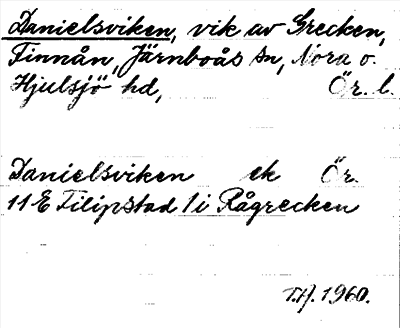 Danielsviken, vik av Grecken,
Finnån, Järnboås sn, Nora o.
Hjulsjö hd, Ör. l.
Danielsviken ek Ör.
11 E Filipstad 1 i Rågrecken
T.A. 1960.